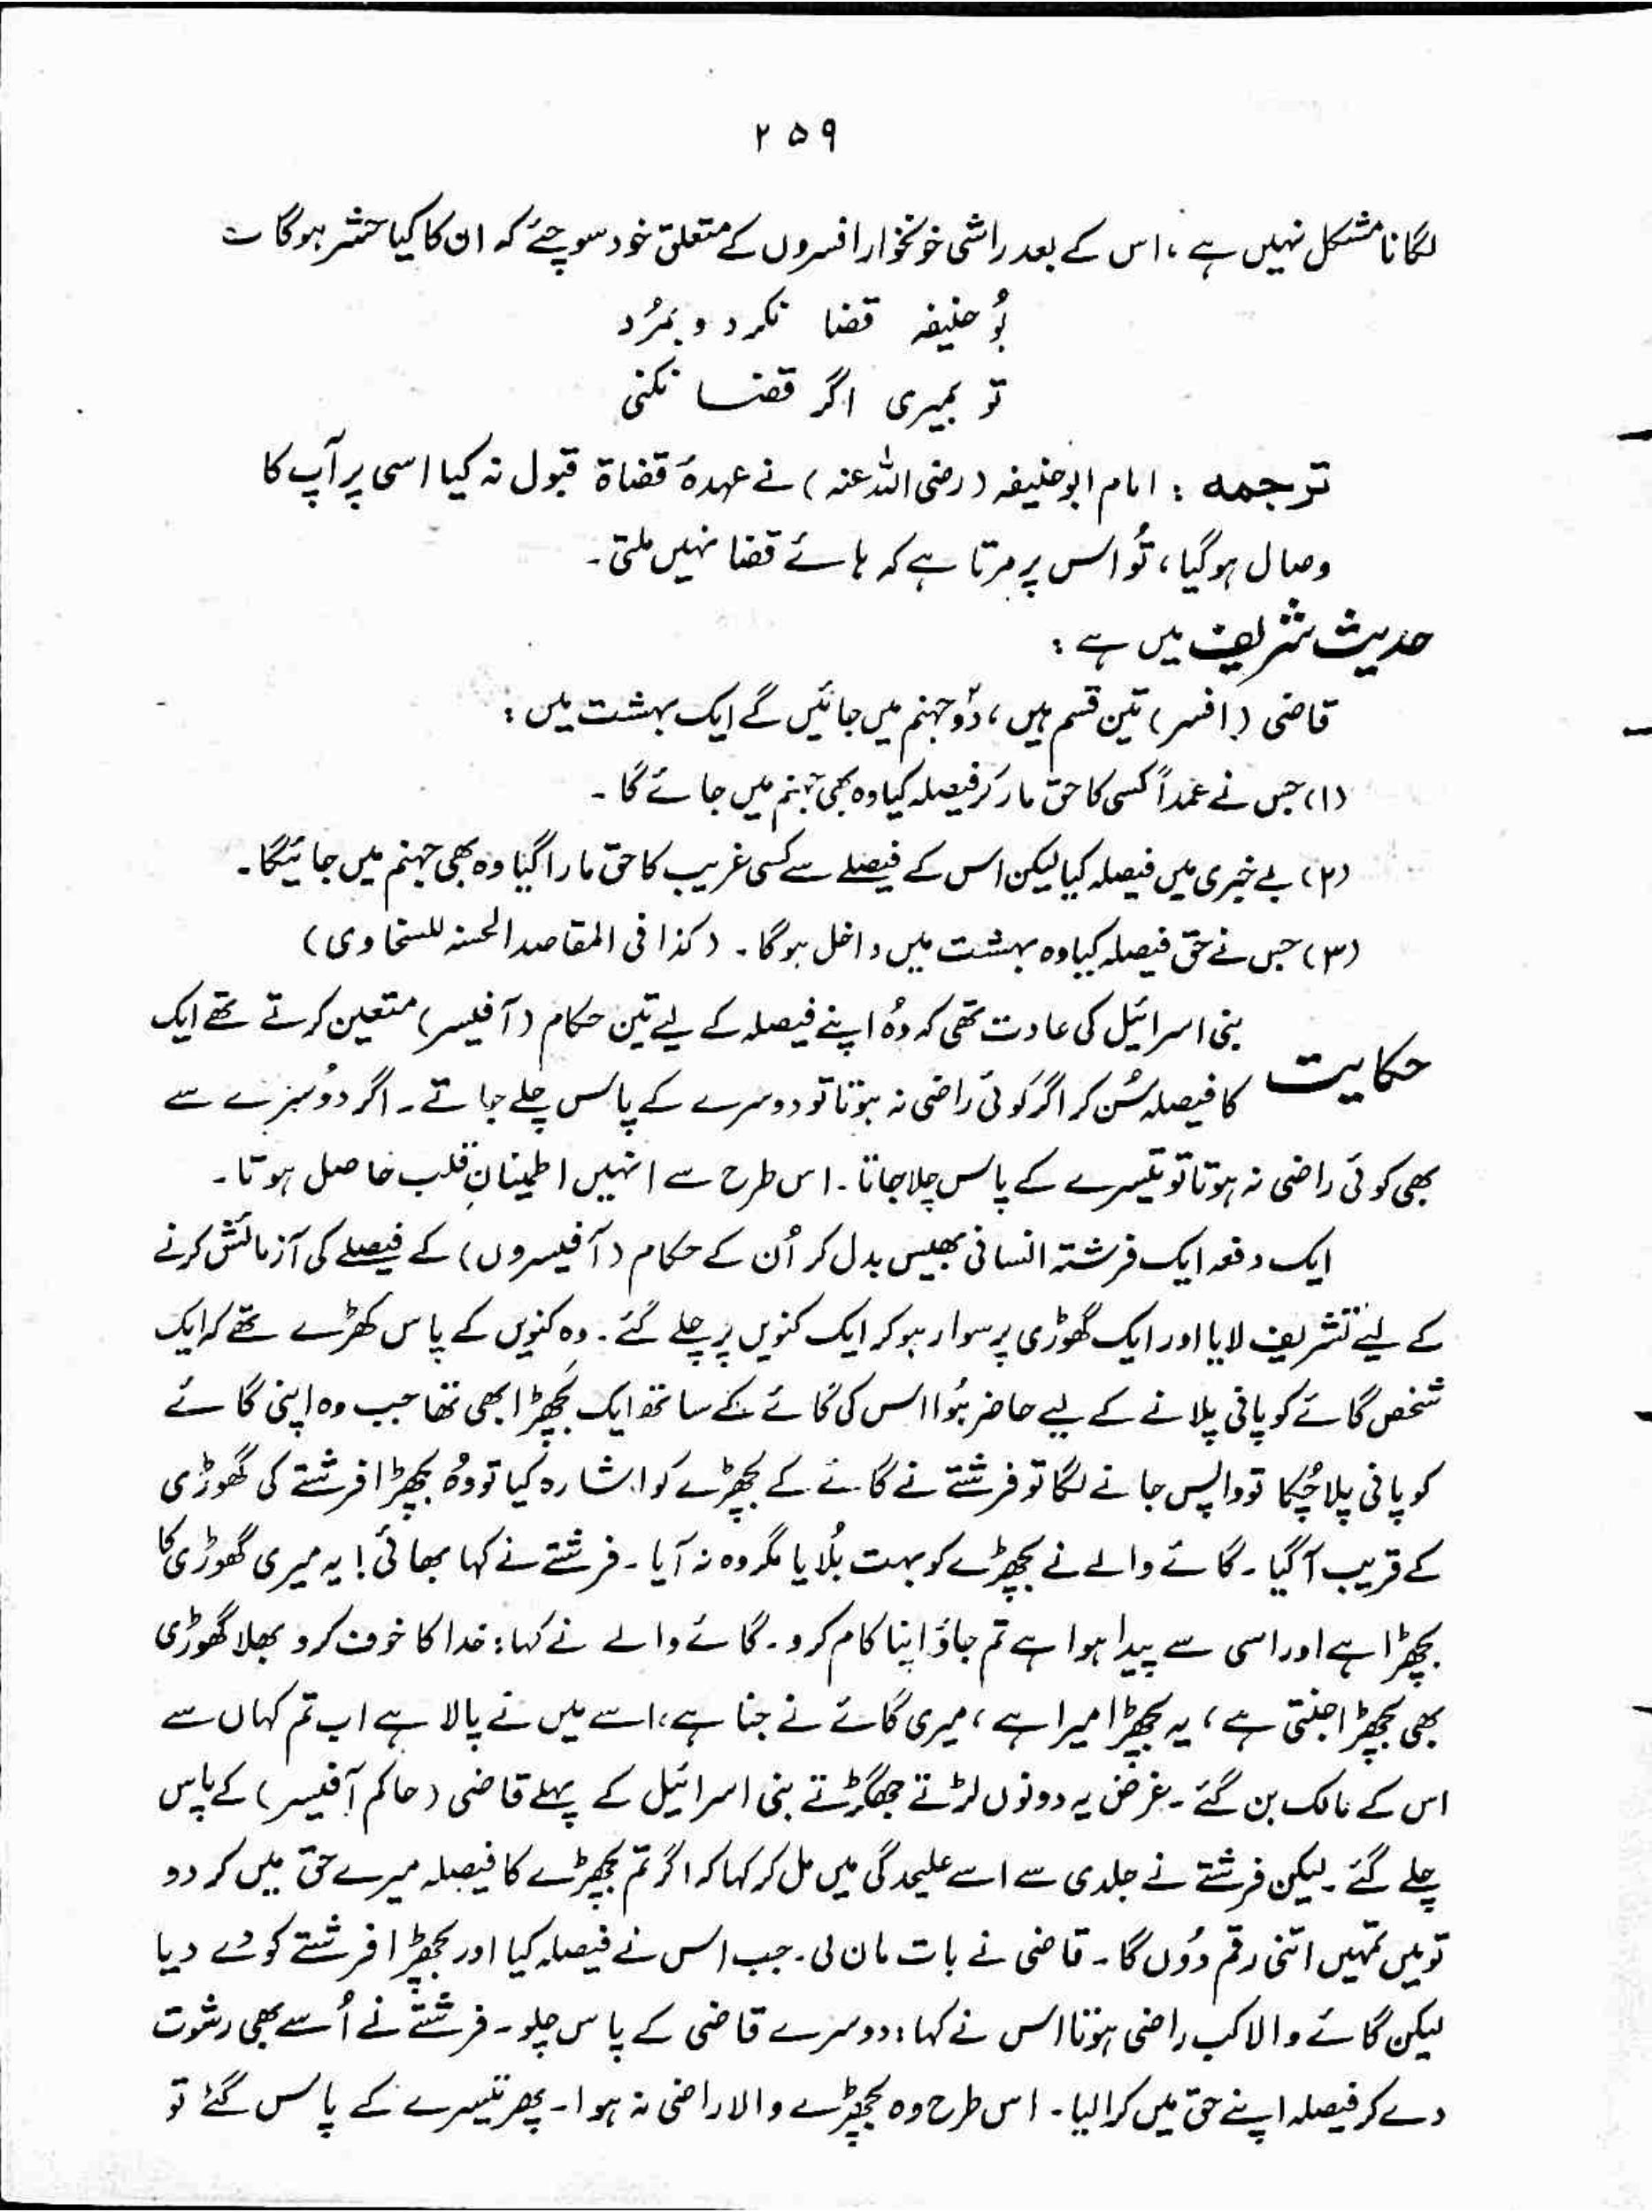 ۲۵۹
لگانا مشکل نہیں ہے ، اس کے بعد راشی خونخوار افسروں کے متعلق خود سوچئے کہ ان کا کیا حشر ہوگا ؎
بُو حنیفہ قضا نکرد و بمُرد
تو بمیری اگر قضا نکنی
ترجمہ : امام ابوحنیفہ (رضی اللہ عنہ) نے عہدۂ قضاۃ قبول نہ کیا اسی پر آپ کا
وصال ہوگیا ، تُو اس پر مرتا ہے کہ ہائے قضا نہیں ملتی۔
حدیث شریف میں ہے :
قاضی (افسر) تین قسم ہیں ، دُو جہنم میں جائیں گے ایک بہشت میں :
(۱) جس نے عمداً کسی کا حق مار کر فیصلہ کیا وہ بھی جہنم میں جائے گا ۔
(۲) بے خبری میں فیصلہ کیا لیکن اس کے فیصلے سے کسی غریب کا حق مارا گیا وہ بھی جہنم میں جائیگا۔
(۳) جس نے حق فیصلہ کیا وہ بہشت میں داخل ہوگا ۔ (کذا فی المقاصد الحسنہ للسخاوی)
بنی اسرائیل کی عادت تھی کہ وُہ اپنے فیصلہ کے لیے تین حکام (آفیسر) متعین کرتے تھے ایک
حکایت کا فیصلہ سُن کر اگر کوئی راضی نہ ہوتا تو دوسرے کے پاس چلے جاتے۔ اگر دُوسرے سے
بھی کوئی راضی نہ ہوتا تو تیسرے کے پاس چلا جاتا۔ اس طرح سے انہیں اطمینانِ قلب حاصل ہوتا۔
ایک دفعہ ایک فرشتہ انسانی بھیس بدل کر اُن کے حکام (آفیسروں) کے فیصلے کی آزمائش کرنے
کے لیے تشریف لایا اور ایک گھوڑی پر سوار ہو کر ایک کنویں پر چلے گئے۔ وہ کنویں کے پاس کھڑے تھے کہ ایک
شخص گائے کو پانی پلانے کے لیے حاضر ہُوا اس کی گائے کے ساتھ ایک بچھڑا بھی تھا جب وہ اپنی گائے
کو پانی پلا چُکا تو واپس جانے لگا تو فرشتے نے گائے کے بچھڑے کو اشارہ کیا تو وُہ بچھڑا فرشتے کی گھوڑی
کے قریب آگیا۔ گائے والے نے بچھڑے کو بہت بُلایا مگر وہ نہ آیا۔ فرشتے نے کہا بھائی ! یہ میری گھوڑی کا
بچھڑا ہے اور اسی سے پیدا ہوا ہے تم جاؤ اپنا کام کرو۔ گائے والے نے کہا : خدا کا خوف کرو بھلا گھوڑی
بھی بچھڑا جنتی ہے ، یہ بچھڑا میرا ہے ، میری گائے نے جنا ہے، اسے میں نے پالا ہے اب تم کہاں سے
اس کے مالک بن گئے۔ غرض یہ دونوں لڑتے جھگڑتے بنی اسرائیل کے پہلے قاضی (حاکم آفیسر) کے پاس
چلے گئے۔ لیکن فرشتے نے جلدی سے اسے علیحدگی میں مل کر کہا کہ اگر تم بچھڑے کا فیصلہ میرے حق میں کر دو
تو میں تمہیں اتنی رقم دُوں گا۔ قاضی نے بات مان لی۔ جب اس نے فیصلہ کیا اور بچھڑا فرشتے کو دے دیا
لیکن گائے والا کب راضی ہوتا اس نے کہا : دوسرے قاضی کے پاس چلو۔ فرشتے نے اُسے بھی رشوت
دے کر فیصلہ اپنے حق میں کرا لیا۔ اس طرح وہ بچھڑے والا راضی نہ ہوا۔ پھر تیسرے کے پاس گئے تو